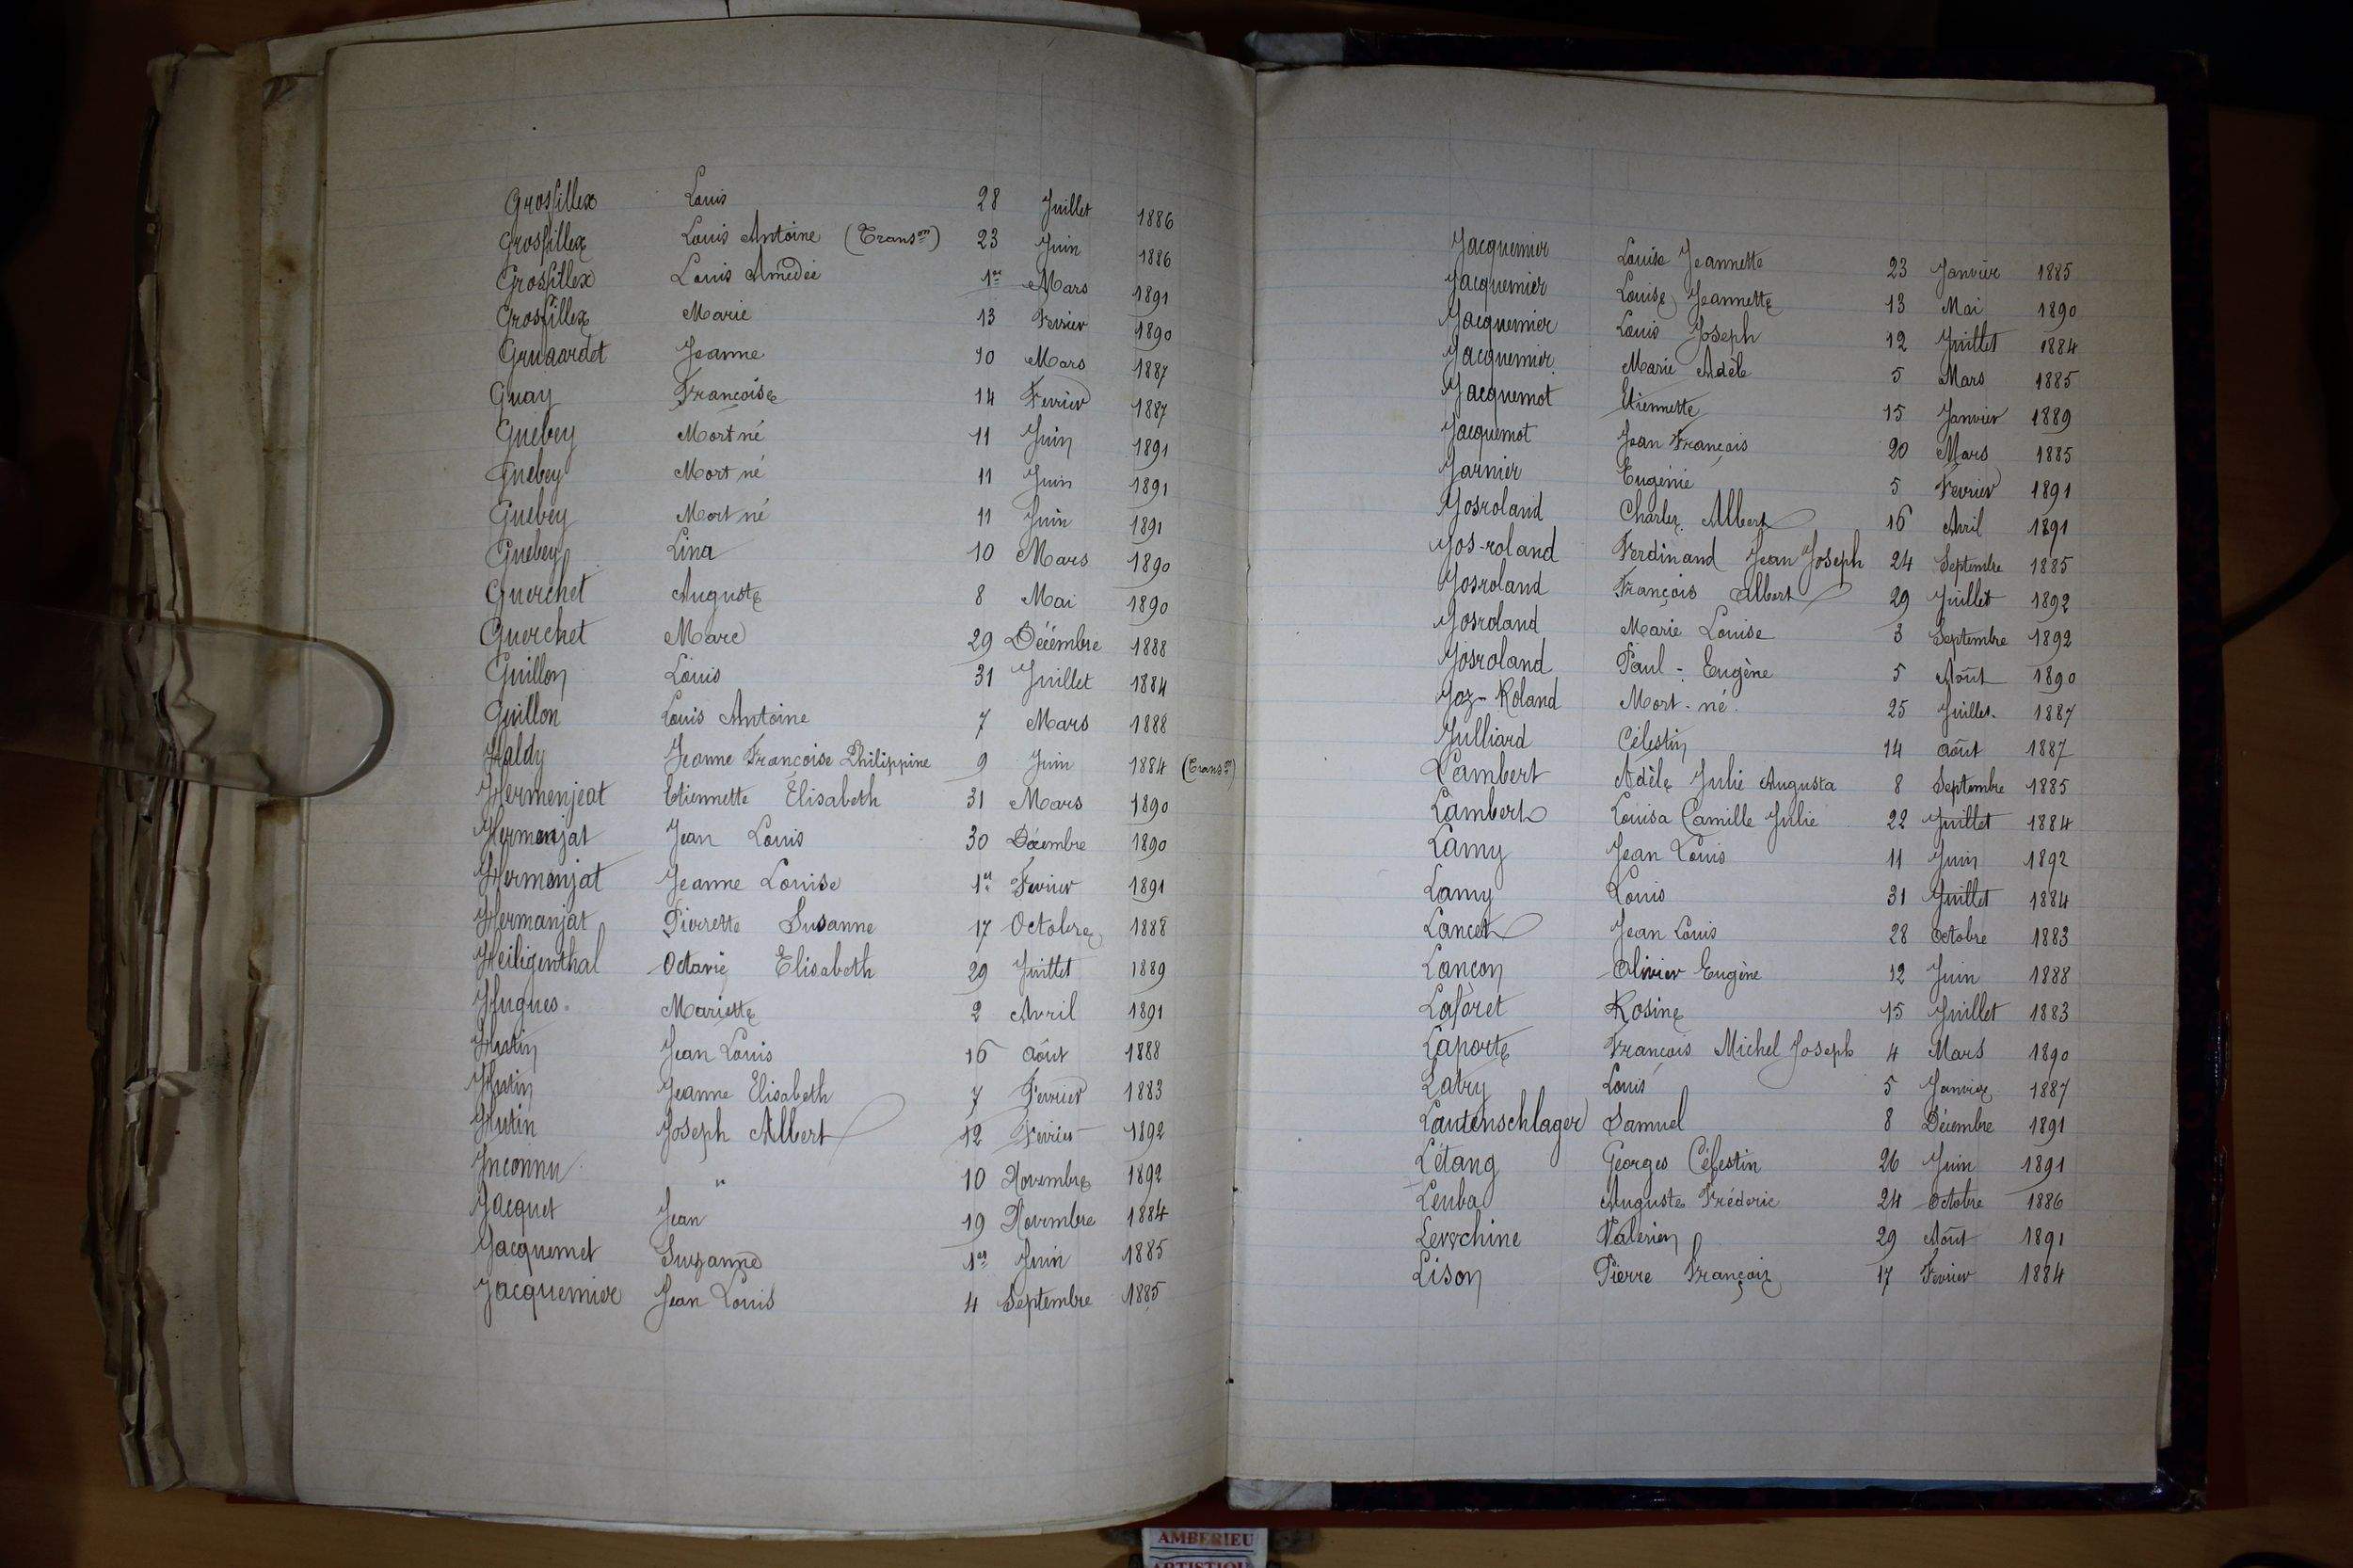 Grosfillex Louis 28 Juillet 1886
Grosfillex Louis Antoine (Trans.on) 23 Juin 1886
Grosfillex Louis Amedée 1er Mars 1891
Grosfillex Marie 13 Fevrier 1890
Gruardet Jeanne 10 Mars 1887
Guay Françoise 14 Fevrier 1887
Guebey Mort né 11 Juin 1891
Guebey Mort né 11 Juin 1891
Guebey Mort né 11 Juin 1891
Guebey Lina 10 Mars 1890
Guerchet Auguste 8 Mai 1890
Guerchet Marc 29 Décembre 1888
Guillon Louis 31 Juillet 1884
Guillon Louis Antoine 7 Mars 1888
Haldy Jeanne Françoise Philippine 9 Juin 1884 (Trans.on)
Hermenjeat Etiennette Elisabeth 31 Mars 1890
Hermenjat Jean Louis 30 Décembre 1890
Hermenjat Jeanne Louise 1er Fevrier 1891
Hermanjat Pierrette Susanne 17 Octobre 1888
Heiligenthal Octavie Elisabeth 29 Juillet 1889
Hugues Mariette 2 Avril 1891
Hutin Jean Louis 16 Août 1888
Hutin Jeanne Elisabeth 7 Fevrier 1883
Hutin Joseph Albert 12 Fevrier 1892
Inconnu " 10 Novembre 1892
Jacquet Jean 19 Novembre 1884
Jacquemet Suzanne 1er Juin 1885
Jacquemier Jean Louis 4 Septembre 1885
Jacquemier Louise Jeannette 23 Janvier 1885
Jacquemier Louise Jeannette 13 Mai 1890
Jacquemier Louis Joseph 12 Juillet 1884
Jacquemier Marie Adèle 5 Mars 1885
Jacquemot Etiennette 15 Janvier 1889
Jacquemot Jean François 20 Mars 1885
Jarnier Eugénie 5 Fevrier 1891
Josroland Charles Albert 16 Avril 1891
Jos-roland Ferdinand Jean Joseph 24 Septembre 1885
Josroland François Albert 29 Juillet 1892
Josroland Marie Louise 3 Septembre 1892
Josroland Paul - Eugène 5 Août 1890
Joz-Roland Mort-né. 25 Juillet 1887
Julliard Célestin 14 Août 1887
Lambert Adèle Julie Augusta 8 Septembre 1885
Lambert Louisa Camille Julie 22 Juillet 1884
Lamy Jean Louis 11 Juin 1892
Lamy Louis 31 Juillet 1884
Lancet Jean Louis 28 Octobre 1883
Lançon Olivier Eugène 12 Juin 1888
Laforet Rosine 15 Juillet 1883
Laporte François Michel Joseph 4 Mars 1890
Labry Louis 5 Janvier 1887
Lautenschlager Samuel 8 Décembre 1891
Létang Georges Célestin 26 Juin 1891
Leuba Auguste Fréderic 24 Octobre 1886
Levschine Valérien 29 Août 1891
Lison Pierre François 17 Fevrier 1884
AMBERIEU